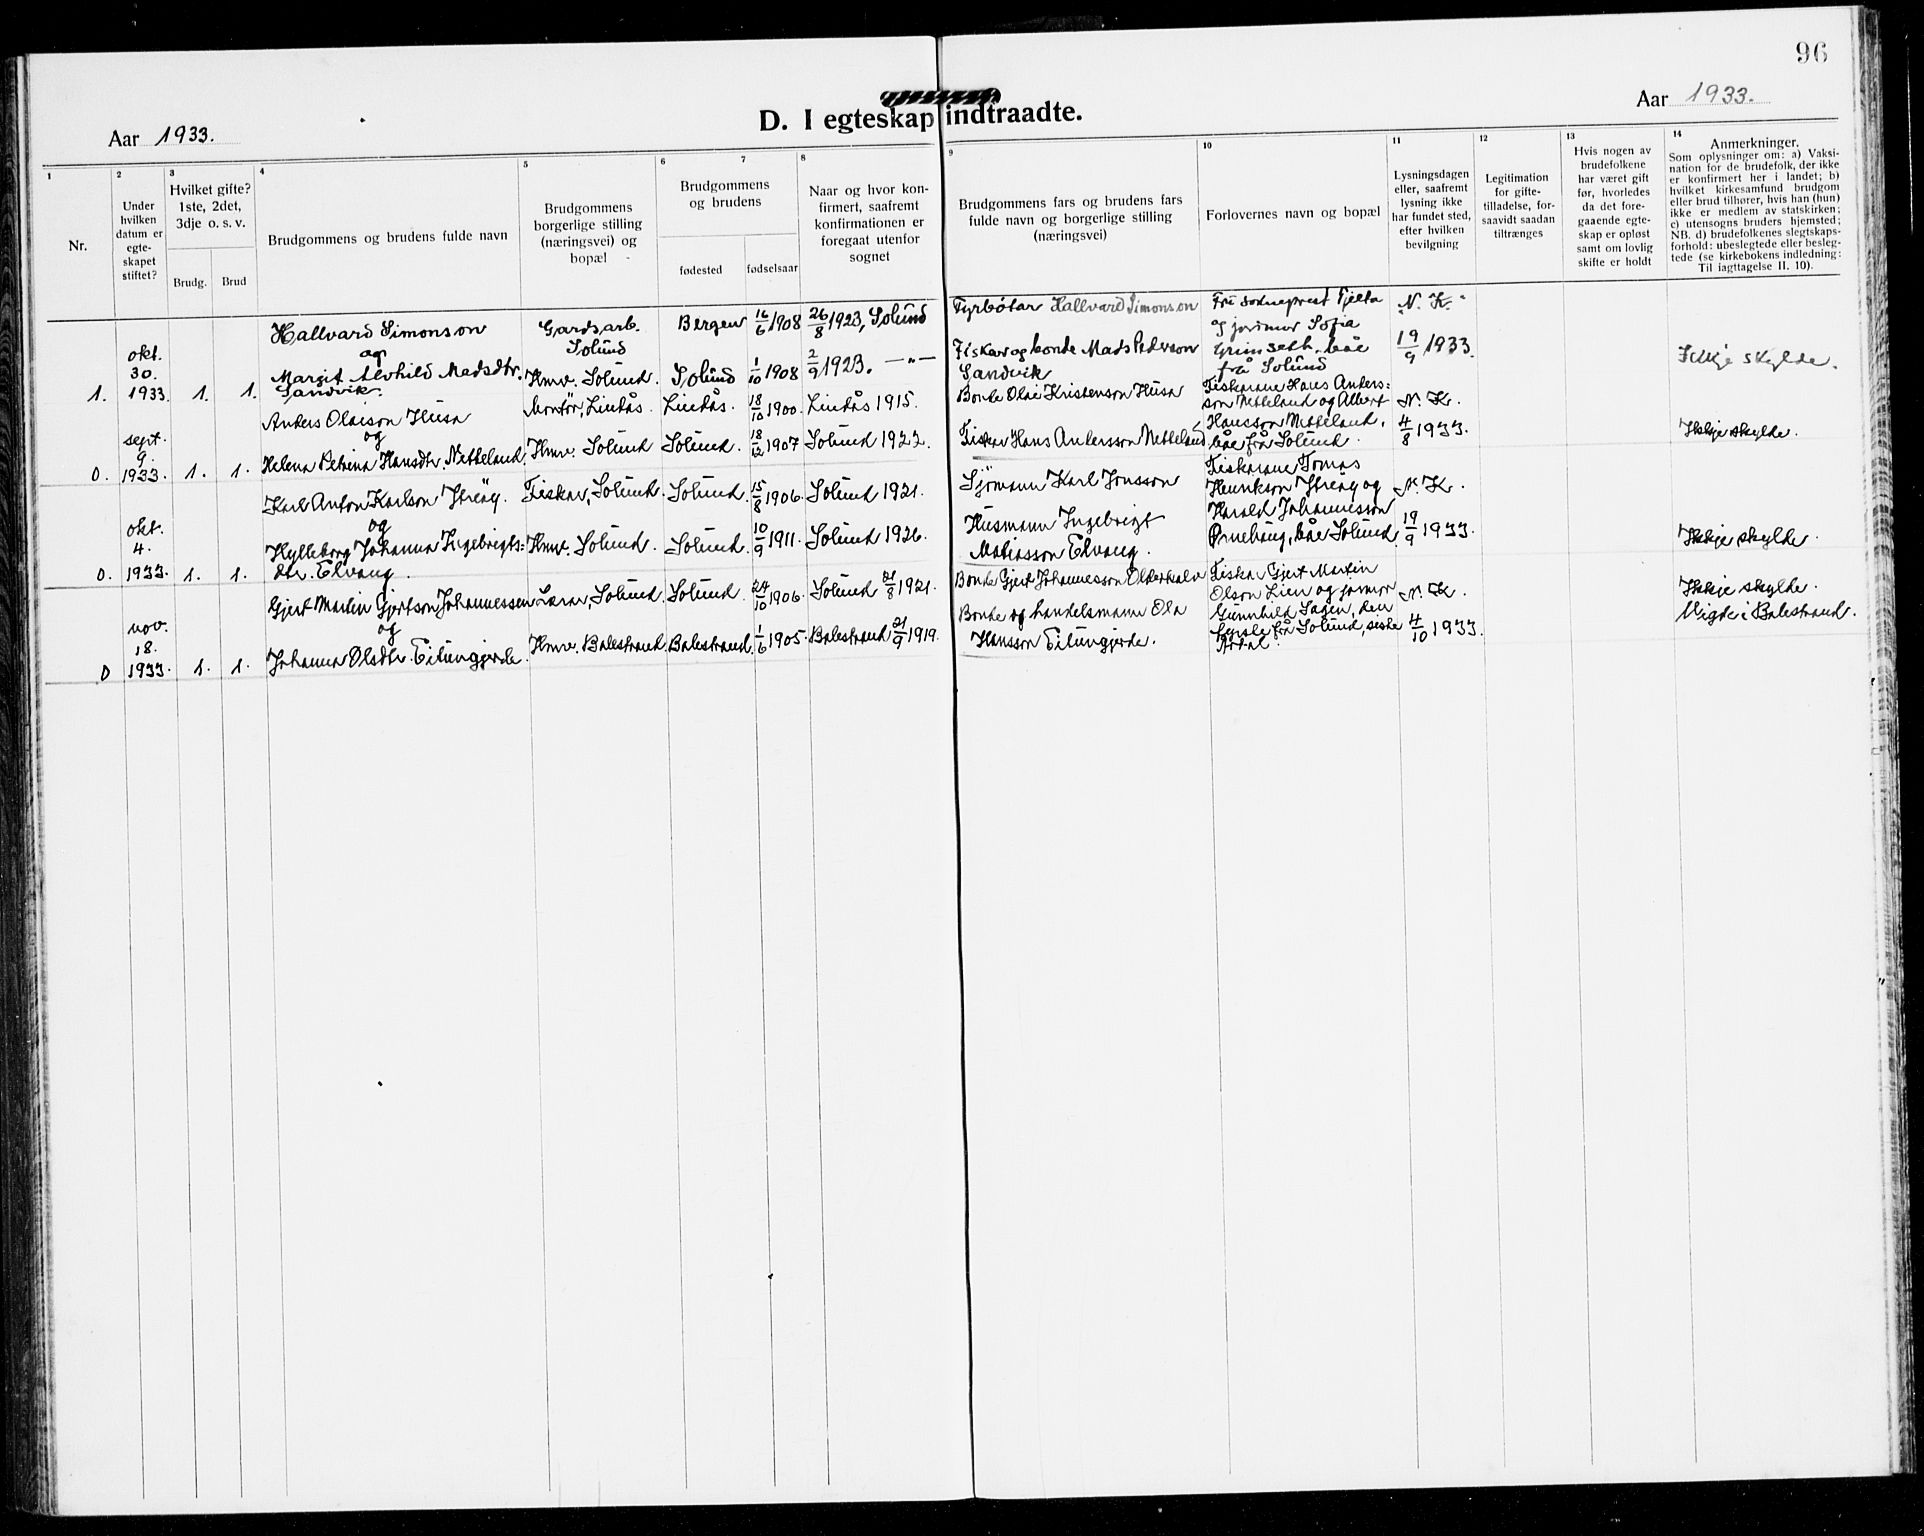 96
D. I egteskap indtraadte.
Aar 1933.
Aar 1933.
1
2
3
4
5
6
7
8
9
10
11
12
13
14
Nr.
Under
hvilken
datum er
egte-
skapet
stiftet?
Hvilket gifte?
1ste, 2det,
3dje o. s. v.
Brudg.
Brud
Brudgommens og brudens fulde navn
Brudgommens
borgerlige stilling
(næringsvei) og
bopæl
Brudgommens
og brudens
fødested
fødselsaar
Naar og hvor kon-
firmert, saafremt
konfirmationen er
foregaat utenfor
sognet
Brudgommens fars og brudens fars
fulde navn og borgerlige stilling
(næringsvei)
Forlovernes navn og bopæl
Lysningsdagen
eller, saafremt
lysning ikke
har fundet sted,
efter hvilken
bevilgning
Legitimation
for gifte-
tilladelse, for-
saavidt saadan
tiltrænges
Hvis nogen av
brudefolkene
har været gift
før, hvorledes
da det fore-
gaaende egte-
skap er opløst
samt om lovlig
skifte er holdt
Anmerkninger.
Som oplysninger om: a) Vaksi-
nation for de brudefolk, der ikke
er konfirmert her i landet; b)
hvilket kirkesamfund brudgom
eller brud tilhører, hvis han (hun)
ikke er medlem av statskirken;
c) utensogns bruders hjemsted;
NB. d) brudefolkenes slegtskaps-
forhold: ubeslegtede eller besleg-
tede (se kirkebokens indledning:
Til iagttagelse II. 10).
1.
okt.
30.
1933.
1.
1.
Hallvard Simonson
og
Margit Alvhild Madsdtr.
Sandvik.
Gardsarb.
Solund
Hmv. Solund.
Bergen
Solund
16/6 1908
1/10 1908
26/8 1923, Solund
2/9 1923. —"—
Tyrbøtar Hallvard Simonson
Fiskar og bonde Mads Pederson
Sandvik
Fru sokneprest Fjelta
og jordmor Sofia
Grimseth, båe
frå Solund
N. K.
19/9 1933
Ikkje skylde.
0.
sept.
9.
1933.
1.
1.
Anders Olaeson Husa
og
Helena Petrina Hansdtr. Netteland.
Montör, Lindås.
Hmv. Solund
Lindås.
Solund.
18/10 1900.
18/12 1907
Lindås 1915.
Solund 1922.
Bonde Olai Kristenson Husa
Fiskar Hans Andersson Netteland
Fiskarane Hans Anders=
son Netteland og Albert
Hansson Netteland,
båe frå Solund.
N. K.
4/8 1933.
Ikkje skylde.
0.
okt.
4.
1933.
1.
1.
Karl Anton Karlson Ytreøy.
og
Hylleborg Johanna Ingebrigts=
dtr. Elvaug.
Fiskar, Solund.
Hmv. Solund.
Solund.
Solund.
15/8 1906.
10/9 1911.
Solund 1921.
Solund 1926.
Sjømann Karl Jonsson
Husmann Ingebrigt
Matiasson Elvaug.
Fiskarane Tomas
Henrikson Ytreøy og
Harald Johannesson
Ørnehaug, båe Solund.
N. K.
19/9 1933.
Ikkje skylde.
0
nov.
18.
1933.
1.
1.
Gjert Martin Gjertson Johannessen
og
Johanna Olsdtr. Eitungjerde.
Lærar, Solund.
Hmv. Balestrand.
Solund.
Balestrand.
24/10 1906.
1/6 1905.
Solund 21/8 1921.
Balestrand 21/9 1919.
Bonde Gjert Johannesson
Bonde og handelsmann Ola
Hansson Eitungjerde.
Fiskar Gjert Martin
Olson Lien og jomor
Gunnhild Sagen, den
fyrste frå Solund, siste
Årdal.
N. K.
4/10 1933.
Ikkje skylde.
Vigde i Balestrand.